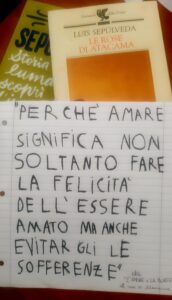 SEPÚ
Storia
LUIS SEPÚLVEDA
LE ROSE
DI ATACAMA
"PERCHÈ AMARE
SIGNIFICA NON
SOLTANTO FARE
LA FELICITÀ
DELL'ESSERE
AMATO MA ANCHE
EVITARGLI LE
SOFFERENZE"